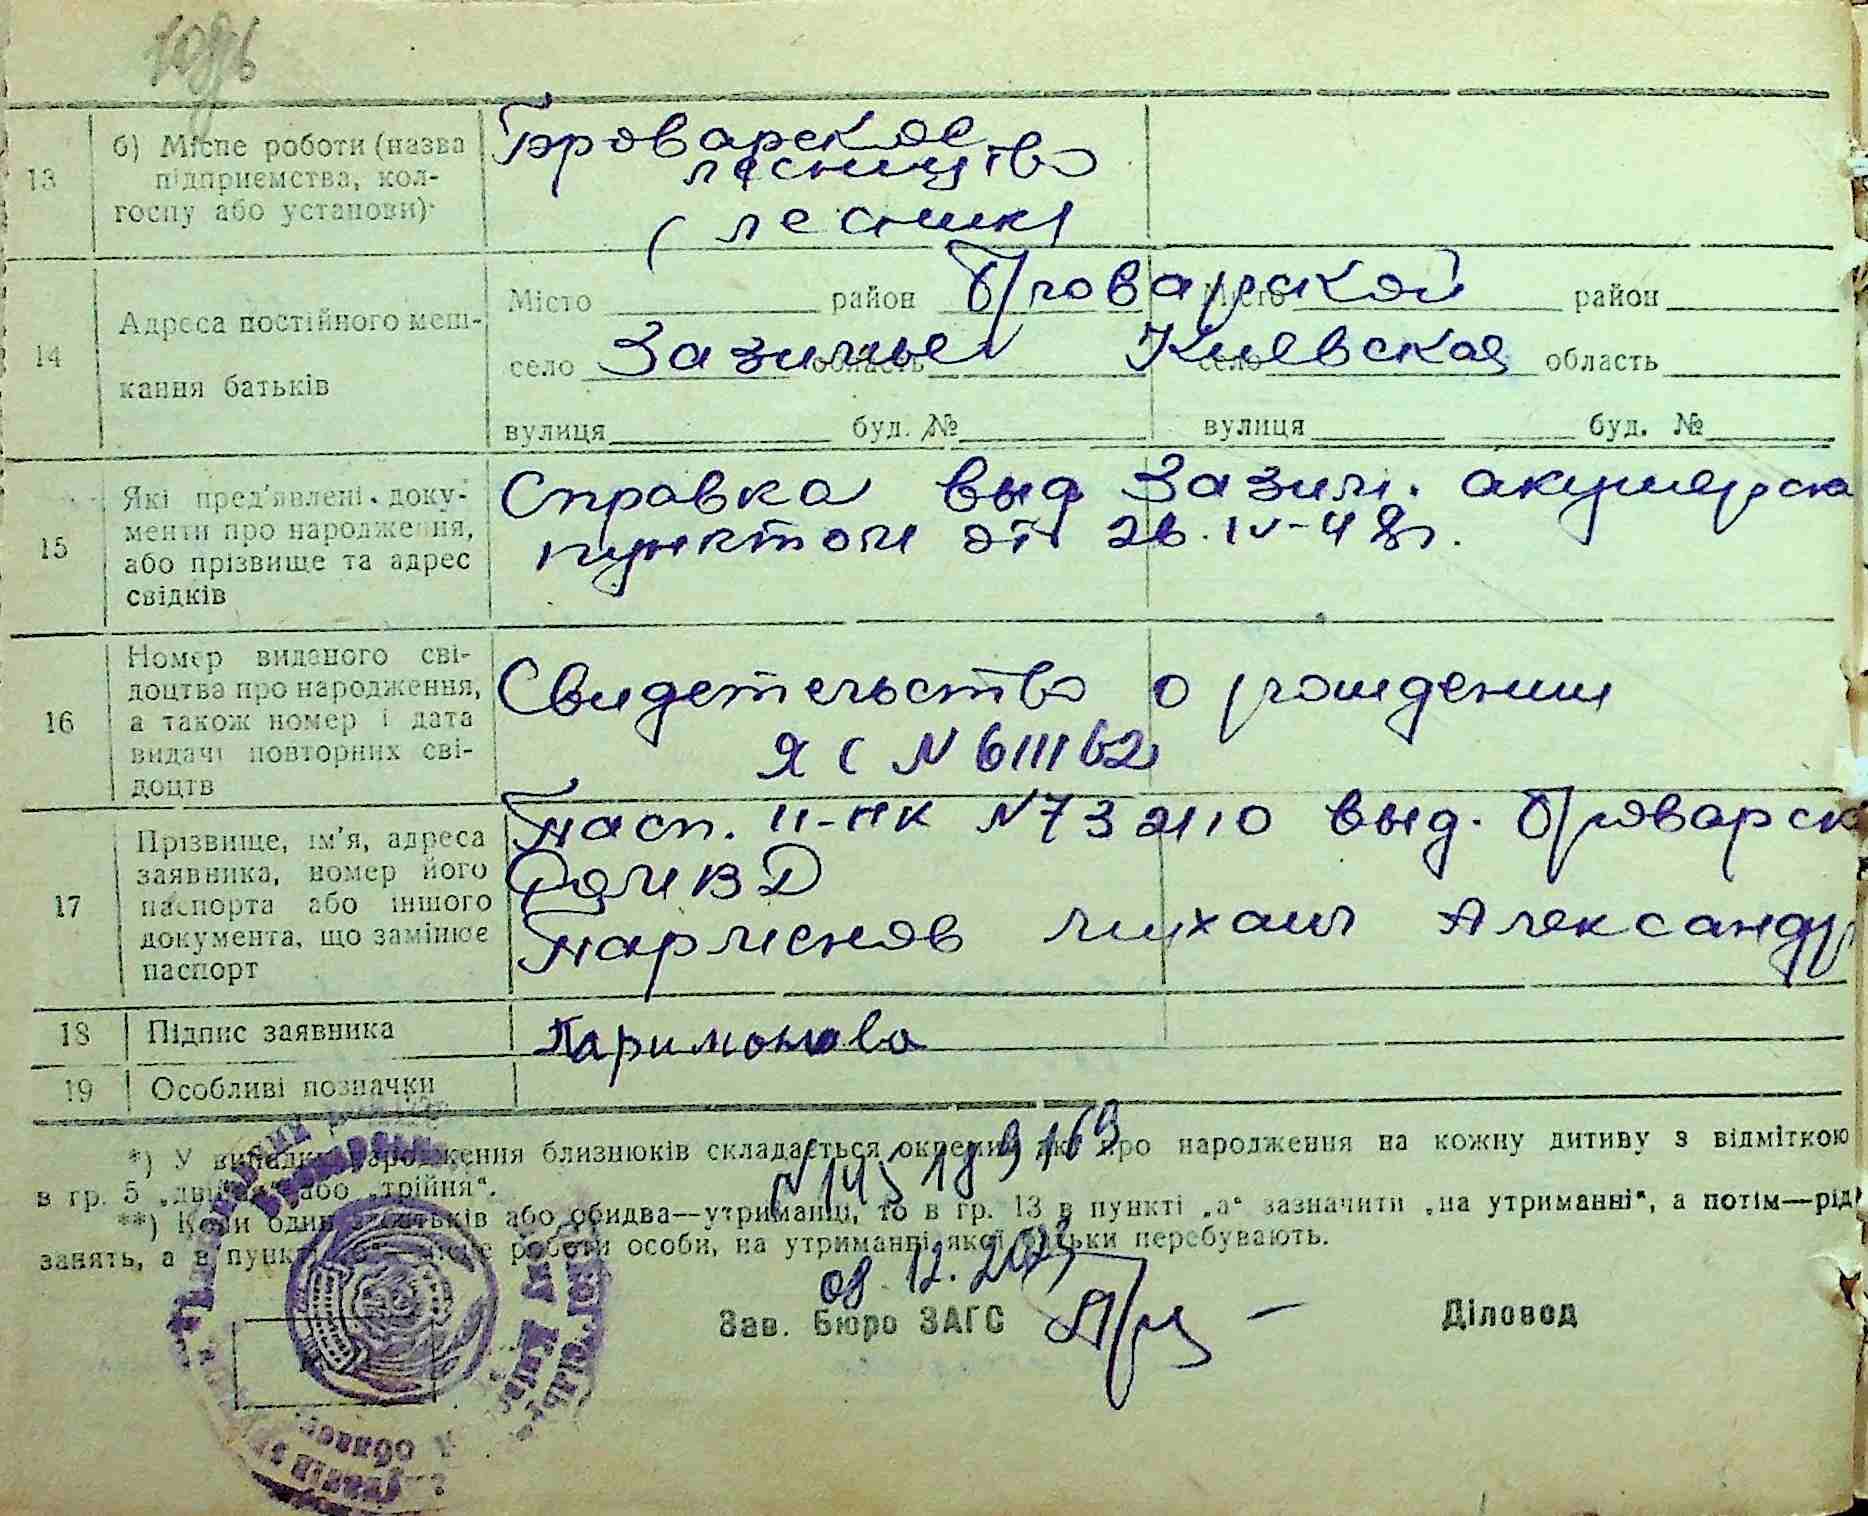 13
б) Місце роботи (назва
підприємства, кол-
госпу або установи)
Броварское
лесництво
(лесник)
14
Адреса постійного меш-
кання батьків
Місто район Броварской Місто район
село Зазимье область Киевская село область
вулиця буд. № вулиця буд. №
15
Які пред'явлені доку-
менти про народження,
або прізвище та адрес
свідків
Справка выд Зазим. акушерска
пунктом от 26.IV-48г.
16
Номер виданого сві-
доцтва про народження,
а також номер і дата
видачі повторних сві-
доцтв
Свидетельство о рождении
ЯС N 611162
17
Прізвище, ім'я, адреса
заявника, номер його
паспорта або іншого
документа, що замінює
паспорт
Пасп. II-ПК N 732110 выд. Броварск
РОМВД
Михаил Александр
18 Підпис заявника Паримонова
19 Особливі позначки
*) У випадку народження близнюків складається окремий акт про народження на кожну дитину з відміткою
в гр. 5 „двійня" або „трійня".
**) Коли один з батьків або обидва—утриманці, то в гр. 13 в пункті „а" зазначити „на утриманні", а потім—рід
занять, а в пункті „б"—місце роботи особи, на утриманні якої батьки перебувають.
08.12.2023
Зав. Бюро ЗАГС Діловод